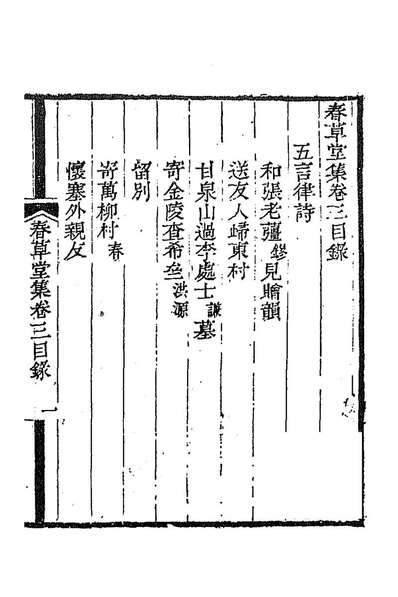 春草堂集卷三目錄
五言律詩
和張老彊鏐見贈韻
送友人歸東村
甘泉山過李處士謙墓
寄金陵查希垒洪源
留別
寄萬柳村春
懷塞外親友
春草堂集卷三目錄 一